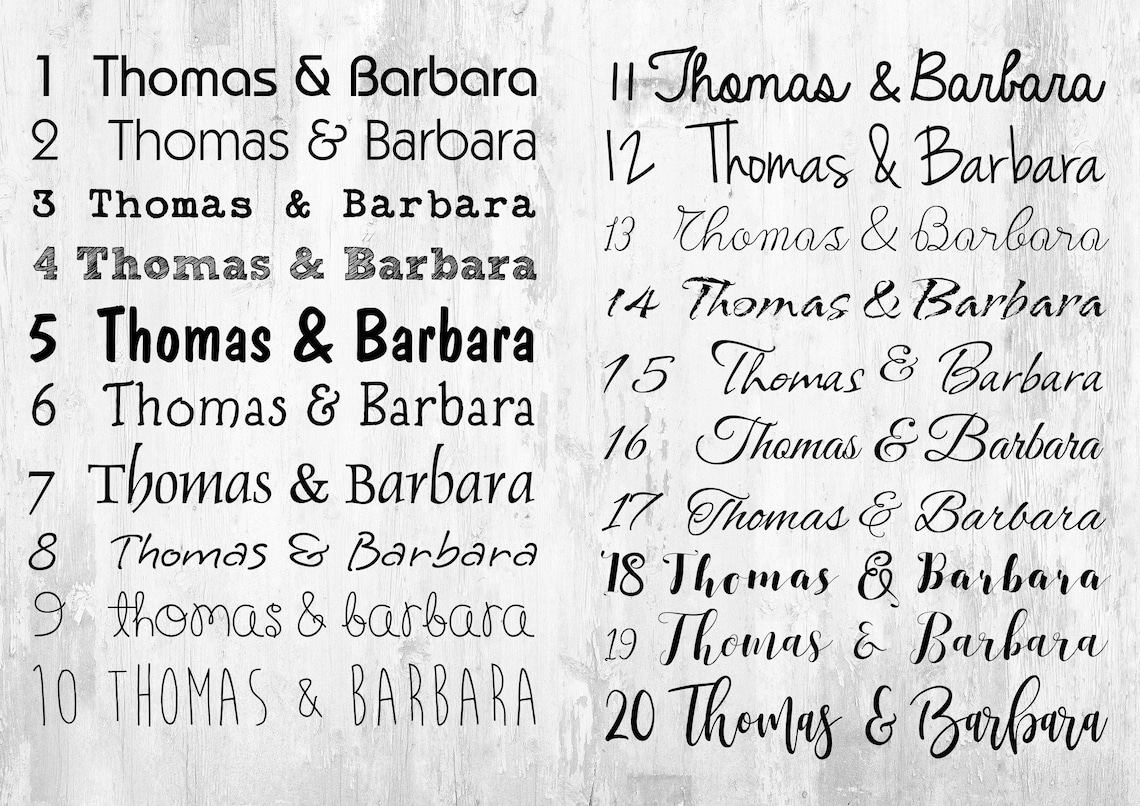 1 Thomas & Barbara
2 Thomas & Barbara
3 Thomas & Barbara
4 Thomas & Barbara
5 Thomas & Barbara
6 Thomas & Barbara
7 Thomas & Barbara
8 Thomas & Barbara
9 thomas & barbara
10 THOMAS & BARBARA
11 Thomas & Barbara
12 Thomas & Barbara
13 Thomas & Barbara
14 Thomas & Barbara
15 Thomas & Barbara
16 Thomas & Barbara
17 Thomas & Barbara
18 Thomas & Barbara
19 Thomas & Barbara
20 Thomas & Barbara